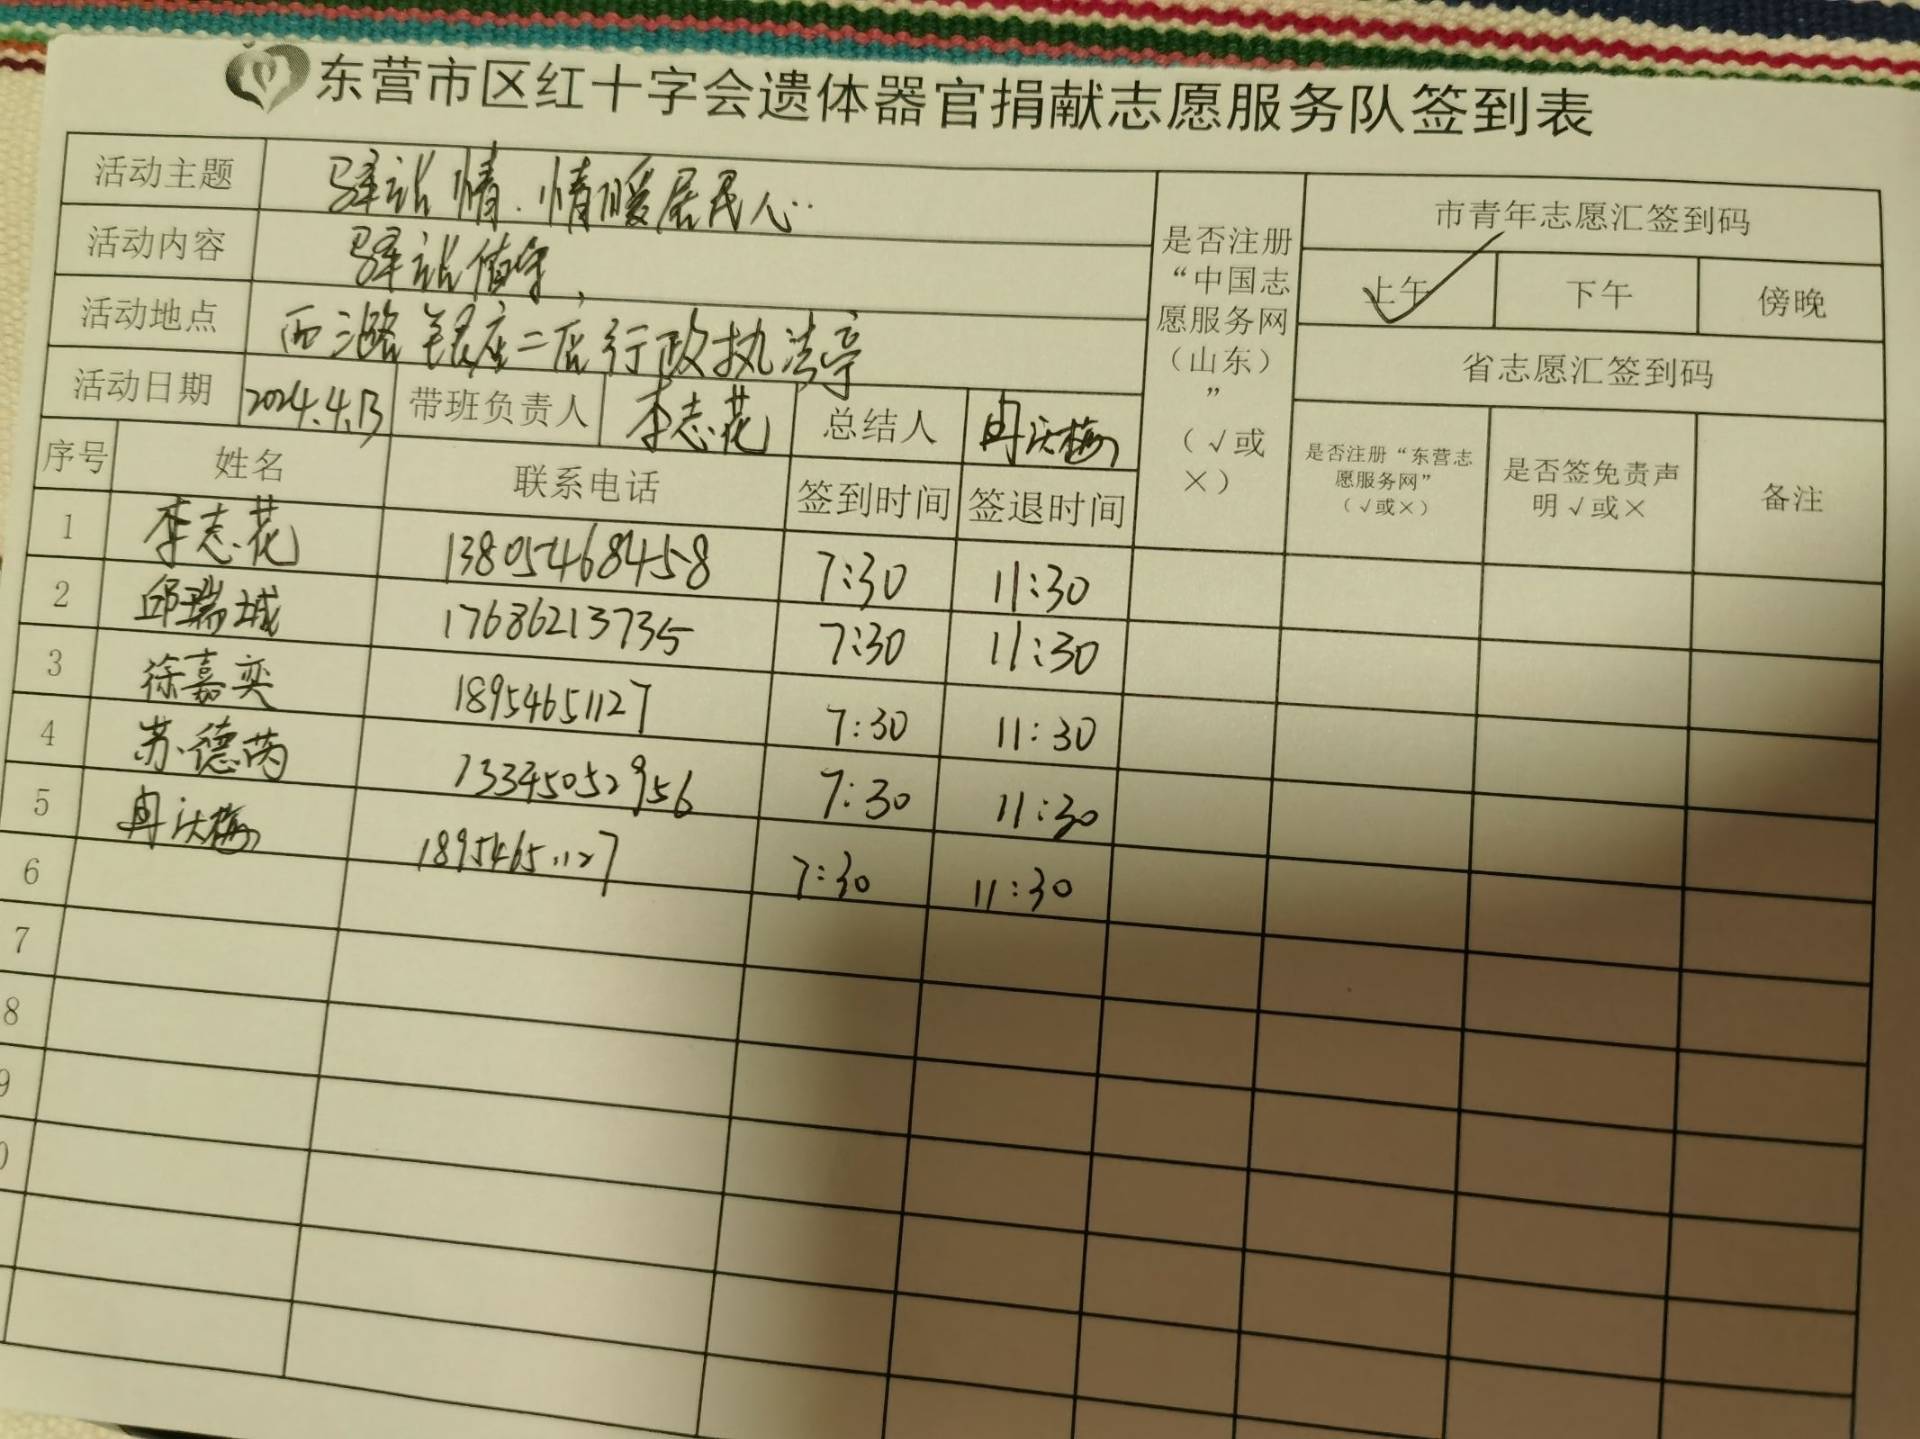 东营市区红十字会遗体器官捐献志愿服务队签到表
活动主题 驿站情.情暖居民人..
活动内容 驿站值守,
活动地点 西二路银座二店行政执法亭
活动日期 2024.4.13 带班负责人 李志花 总结人 冉庆梅
是否注册“中国志愿服务网（山东）”（√或×）
市青年志愿汇签到码
上午 下午 傍晚
省志愿汇签到码
序号 姓名 联系电话 签到时间 签退时间 是否注册“东营志愿服务网”（√或×） 是否签免责声明√或× 备注
1 李志花 13805468458 7:30 11:30
2 邱瑞城 17686213735 7:30 11:30
3 徐嘉奕 18954651127 7:30 11:30
4 苏德芮 13345052956 7:30 11:30
5 冉庆梅 18954651127 7:30 11:30
6
7
8
9
0